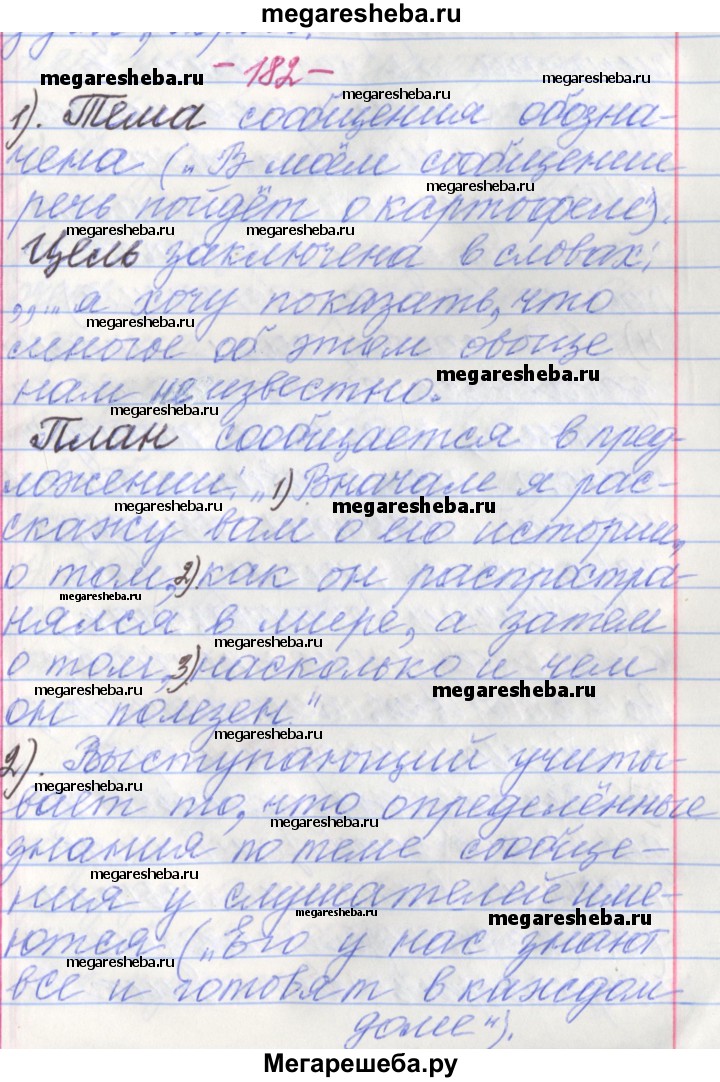 megaresheba.ru
- 182 -
megaresheba.ru
megaresheba.ru
megaresheba.ru
1). Тема сообщения обозна-
чена („В моём сообщении
megaresheba.ru
речь пойдёт о картофеле").
megaresheba.ru
megaresheba.ru
Цель заключена в словах:
„... а хочу показать, что
megaresheba.ru
многое об этом овоще
megaresheba.ru
нам неизвестно.
megaresheba.ru
План сообщается в пред-
ложении: „1) Вначале я рас-
megaresheba.ru
megaresheba.ru
скажу вам о его истории,
о том, 2) как он распростра-
megaresheba.ru
нялся в мире, а затем
megaresheba.ru
о том, 3) насколько и чем
megaresheba.ru
megaresheba.ru
он полезен"
megaresheba.ru
2). Выступающий учиты-
megaresheba.ru
вает то, что определённые
megaresheba.ru
знания по теме сообще-
megaresheba.ru
ния у слушателей име-
megaresheba.ru
megaresheba.ru
ются („Его у нас знают
megaresheba.ru
все и готовят в каждом
доме").
Мегарешеба.ру